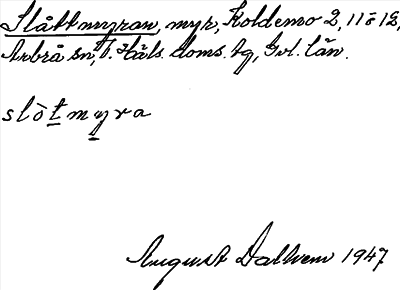 Slåttmyran, myr, Koldemo 2, 11 o 12,
Arbrå sn, V. Häls. doms. tg, Gvl. län.
slòt myra
August Dalhem 1947